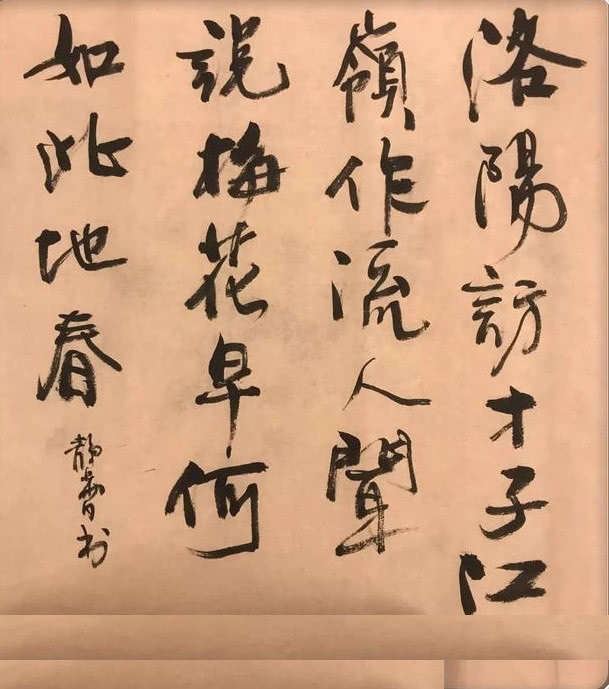 洛陽訪才子江
嶺作流人聞
説梅花早何
如此地春
靜香书